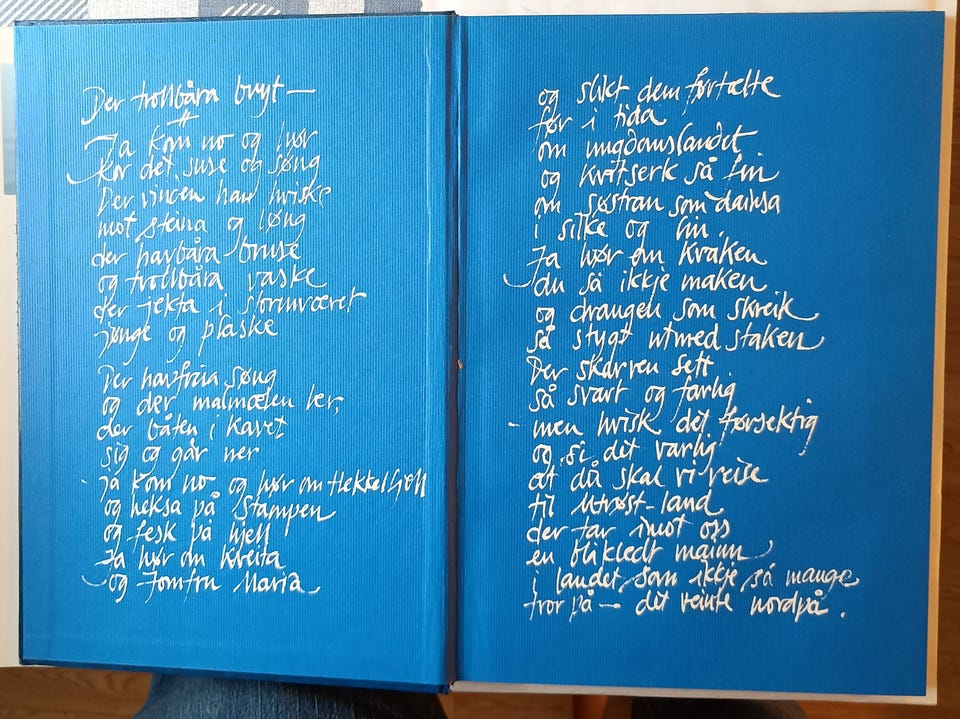 Der trollbåra bryt —
Ja kom no og hør
kor det suse og søng
Der vinden han hviske
mot steina og løng
der havbåra bruse
og trollbåra vaske
der jekta i stormværet
jønge og plaske
Der havfrua søng
og der malmøsen ler,
der båten i kavet
sig og går ner
ja kom no og hør om Hekkelfjell
og heksa på Stampen
og fesk på hjell
Ja hør om Kreita
og Jomfru Maria
og slikt dem fortælte
før i tida
om ungdomslandet
og kvitserk så fin
om søstran som dansa
i silke og lin.
Ja hør om Kraken
du så ikkje maken
og draugen som skreik
så stygt utmed staken
Der skarven sett
så svart og farlig
- men hvisk det forsektig
og si det varlig
at då skal vi reise
til Utrøst-land
der tar imot oss
en blikledt mann
i landet som ikkje så mange
tror på — dit veinte nordpå.